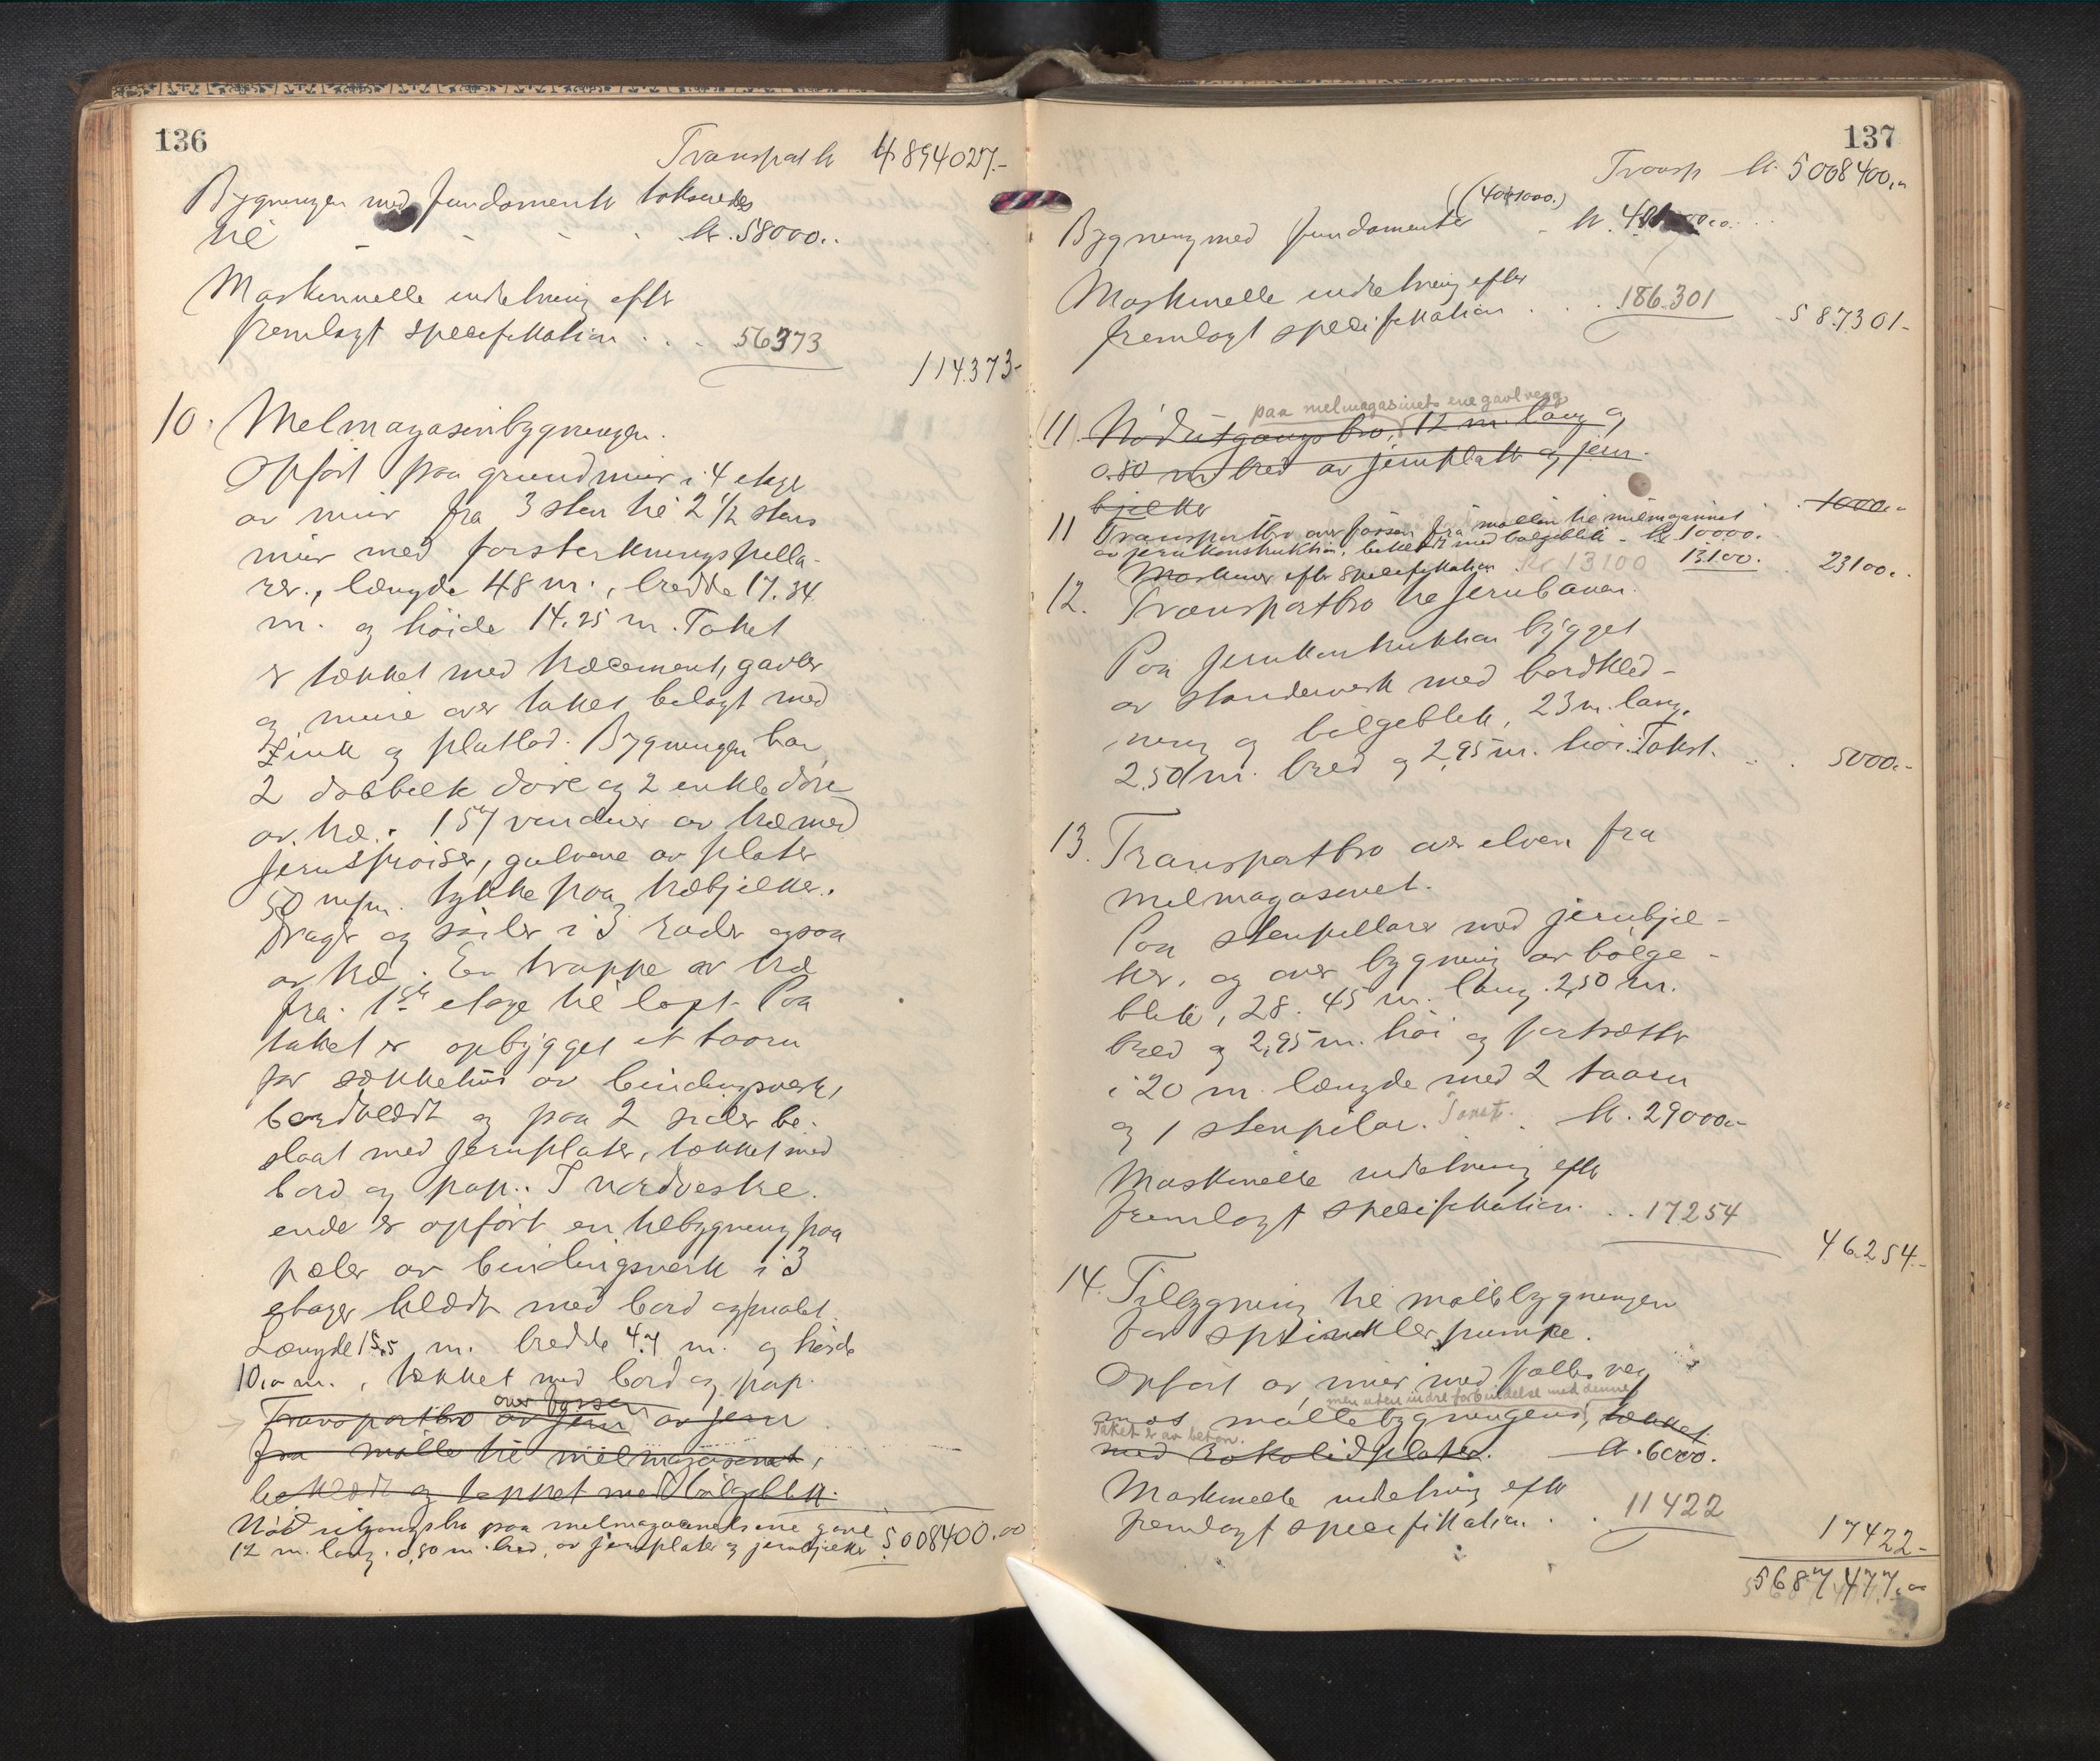 136
Transport kr 4894027.-
Bygningen med fundamenter takseres
til - - - - kr. 58000..
Maskinnelle indretning efter
fremlagt specifikation . . . 56373
114373-
10. Melmagasinbygningen.
Opført paa grundmur i 4 etage
av mur fra 3 sten til 2 1/2 stens
mur med forsterkningspilla-
rer., længde 48 m., bredde 17.34
m. og høide 14.25 m. Taket
er tækket med træcement, gavler
og mure over taket belagt med
Zink og platlod. Bygningen har
2 dobbelte døre og 2 enkle døre
av træ. 157 vinduer av træ med
jernsproiser, gulvene av planker
50 m/m. tykke paa træbjelker.
Drager og søiler i 3 rader ogsaa
av træ. En trappe av træ
fra 1ste etage til loft. Paa
taket er opbygget et taarn
for sækkehus av bindingsverk,
bordklædt og paa 2 sider be-
slaat med jernplater, tækket med
bord og pap.. I nordvestre.
ende er opført en tilbygning paa
pæler av bindingsverk i 3
etager klædt med bord og malt.
Længde 15.5 m. bredde 4.7 m. og høide
10,0 m., tækket med bord og pap.
over fossen
Transportbro av jern av jern
fra mølle til melmagasinet,
beklædt og tækket med bølgeblik.
Nød utgangsbro paa melmagasinets ene gavl
12 m. lang. 0,80 m. bred, av jernplater og jernbjelker 5008400.00
137
Transp kr. 5008400,-
(401000.)
Bygning med fundamenter - kr. 401000.0.
Maskinelle indretning efter
fremlagt specifikation . . 186.301 587301-
paa melmagasinets ene gavlvegg
11. Nødutgangsbro, 12 m. lang og
0.80 m bred av jernplater og jern-
bjelker 1000.-
11 Transportbro over fossen fra møllen til melmagasinet
av jernkonstruktion, beklædt med bølgeblik - kr 10000.
Maskiner efter specifikation Kr 13100 13.100. 23100..
12. Transportbro til Jernbanen.
Paa jernkonstruktion bygget
av standerverk med bordklæd-
ning og bølgeblik, 23 m. lang,
2,50 m. bred og 2,95 m. høi. Takst. . . 5000.-
13. Transportbro over elven fra
melmagasinet.
Paa stenpillarer med jernbjel-
ker, og over bygning av bølge-
blik, 28.45 m. lang. 2,50 m.
bred og 2,95 m. høi og fortsætter
i 20 m. længde med 2 taarn
og 1 stenpilar. Takst. . kr. 29000.-
Maskinelle indretning efter
fremlagt specifikation. . . 17254
46.254.-
14. Tilbygning til møllebygningen
for sprinklerpumpe.
Opført av mur med fælles veg
men uten indre forbindelse med denne
mot møllebygningens, tækket
Taket er av beton.
med Eokolidplater. - kr. 6000.
Maskinelle indretning efter
fremlagt specifikation. . . 11422
17422-
5687477,00